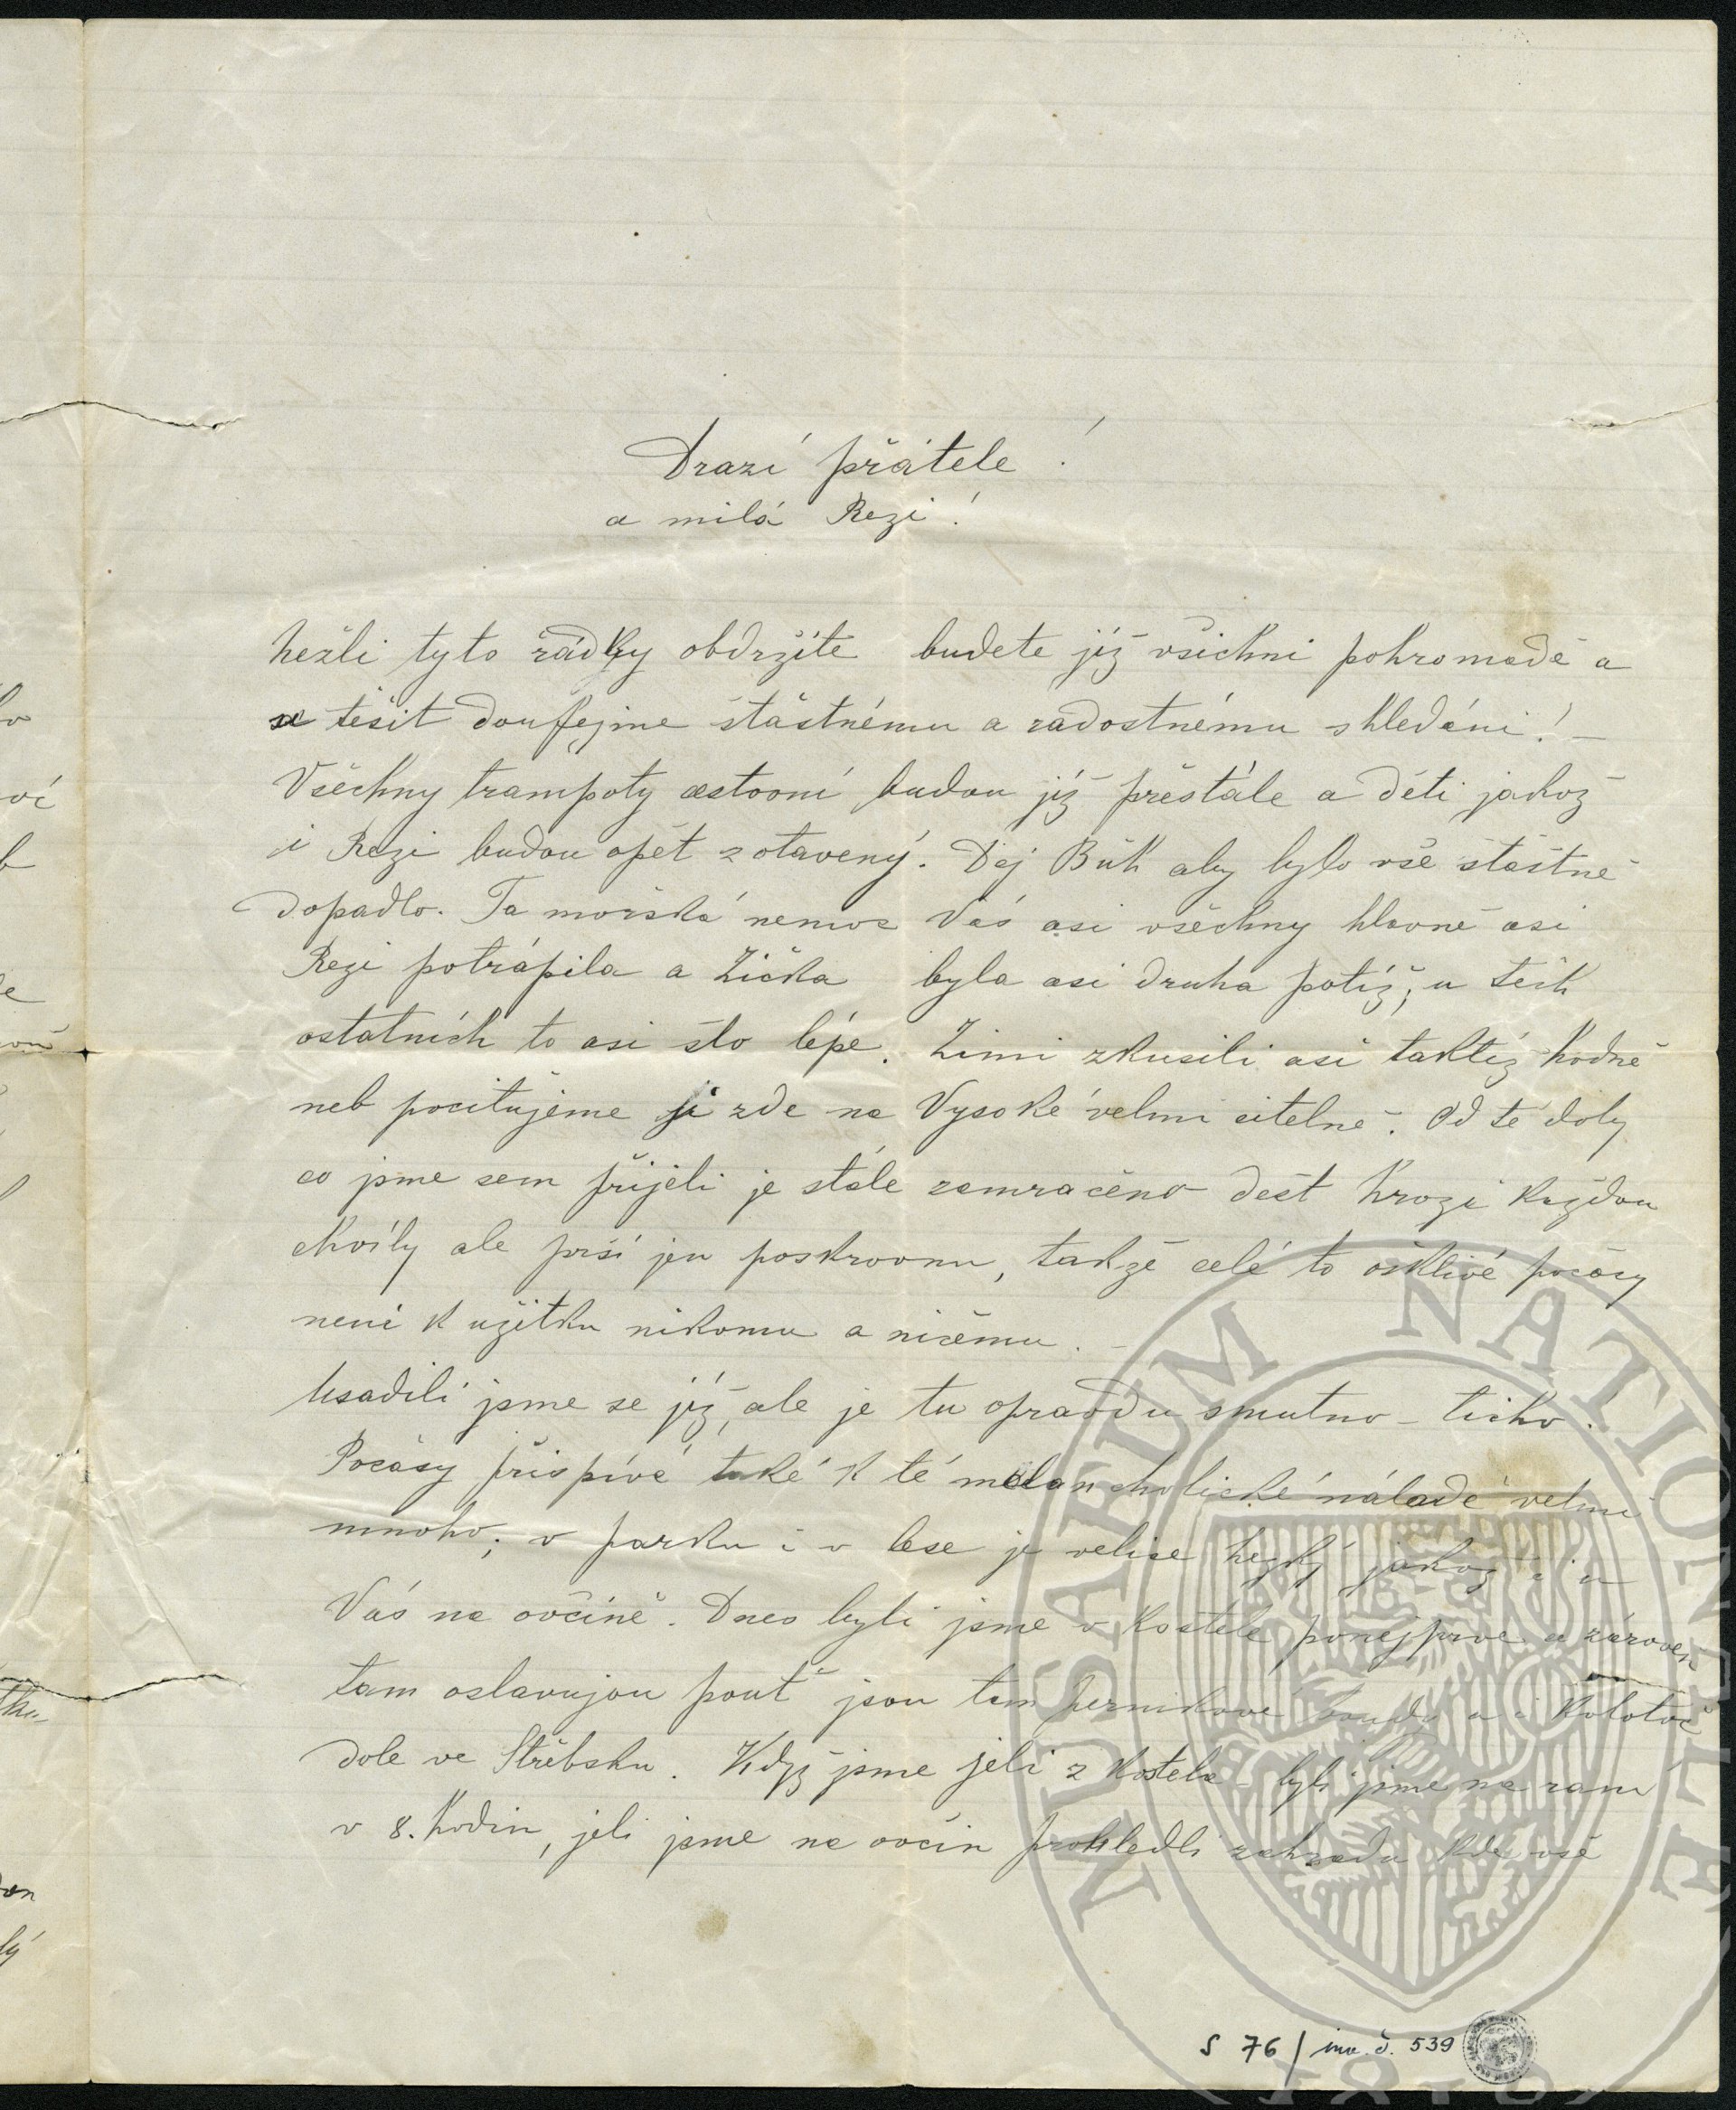 Drazí přátele!
a milá Rezi!
nežli tyto řádky obdržíte budete jíž všichni pohromadě a
se těšit doufejme šťastnému a radostnému shledáni! –
Všechny trampoty cestovní budou jíž přestále a děti jakož
i Rezi budou opět zotavený. Dej Bůh aby bylo vše šťastně
dopadlo. Ta mořská nemoc Vás asi všechny hlavně asi
Rezi potrápila a Zička byla asi druha potíž; u těch
ostatních to asi šlo lépe. Zimi zkusili asi taktéz hodně
neb pocitujeme ji zde na Vysoké velmi citelně. Od té doby
co jsme sem přijeli je stále zamračeno dešt hrozi každou
chvíly ale prší jen poskrovnu, takže celé to ošklivé počásy
není k užitku nikomu a ničemu. –
Usadili jsme se jíž, ale je tu opravdu smutno – ticho!
Počásy přispívá také k té melancholické náladě velmi
mnoho; v parku i v lese je velice hezký jakož i u
Vás na ovčíně. Dnes byli jsme v kostele ponejprve a zároveň
tam oslavujou pouť jsou tam perníkové boudy a i kolotoč
dole ve Střebsku. Když jsme jeli z kostela – byli jsme na ranu
v 8. hodin, jeli jsme na ovčín prohledli zahradu kde vše
S 76 / inv. č. 539
MUSAEUM NATIONALE
1818